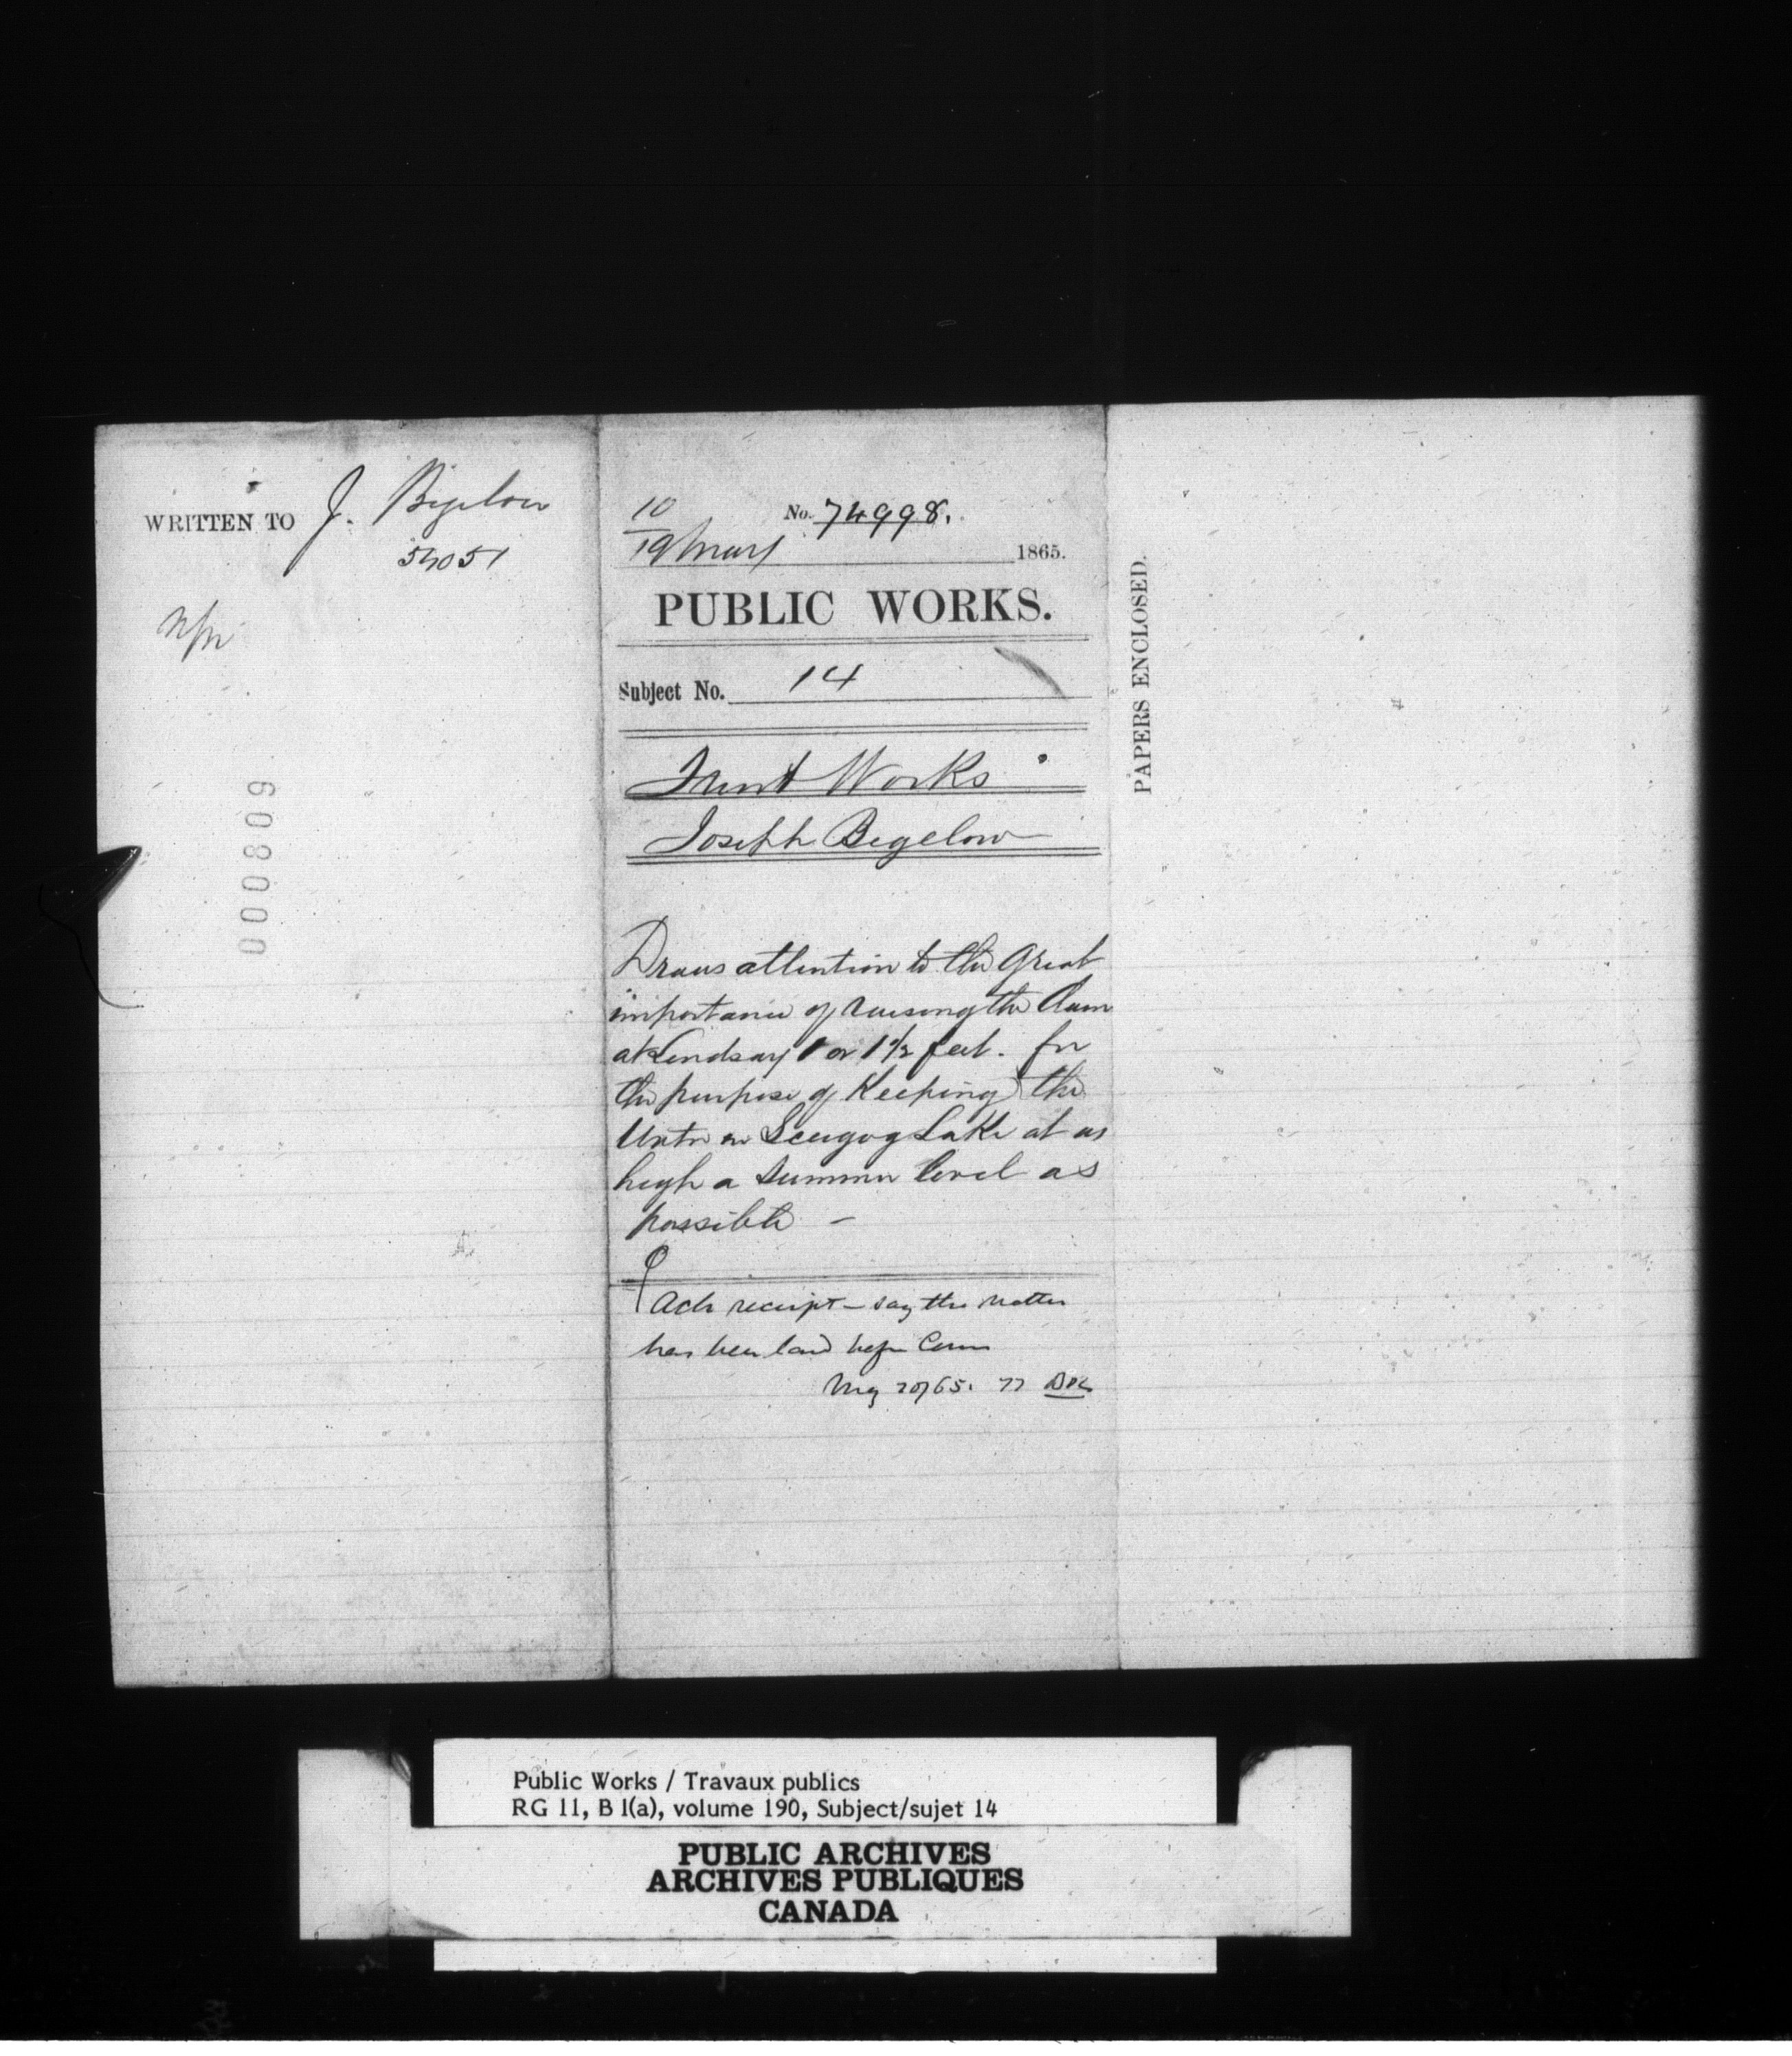 WRITTEN TO J. Bigelow
000809
10
No. 74998.
19 May 1865.
PUBLIC WORKS.
Subject No. 14
Trent Works
Joseph Bigelow
Draws attention to the Great
importance of raising the Dam
at Lindsay 1 or 1 1/2 feet. for
the purpose of Keeping the
Water in Scugog Lake at as
high a summer level as
possible —
Ack receipt – say the matter
has been laid before Comr
May 20/65.
PAPERS ENCLOSED.
Public Works / Travaux publics
RG 11, B 1(a), volume 190, Subject/sujet 14
PUBLIC ARCHIVES
ARCHIVES PUBLIQUES
CANADA